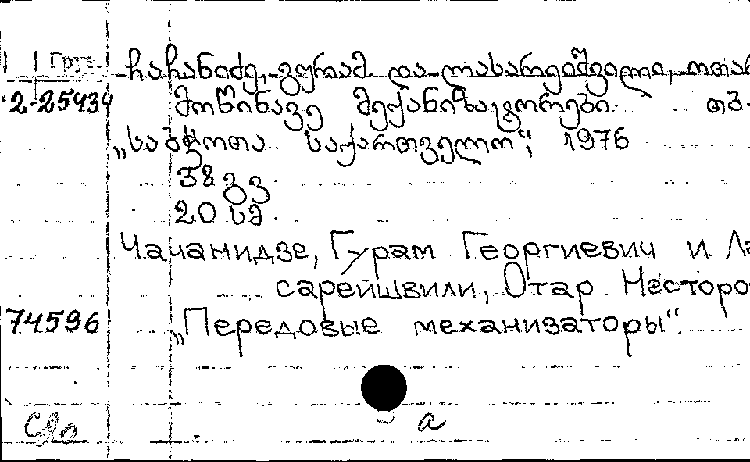 Груз ჩაჩანიძე, გურამ და ლასარეიშვილი, ოთარ
2-25434 მოწინავე მექანიზატორები. თბ.
„საბჭოთა საქართველო“, 1976
38 გვ
20 სმ
Чачамидзе, Гурам Георгиевич и Ла
сарейшвили, Отар Несторо
74596 „Передовые механизаторы“.
а